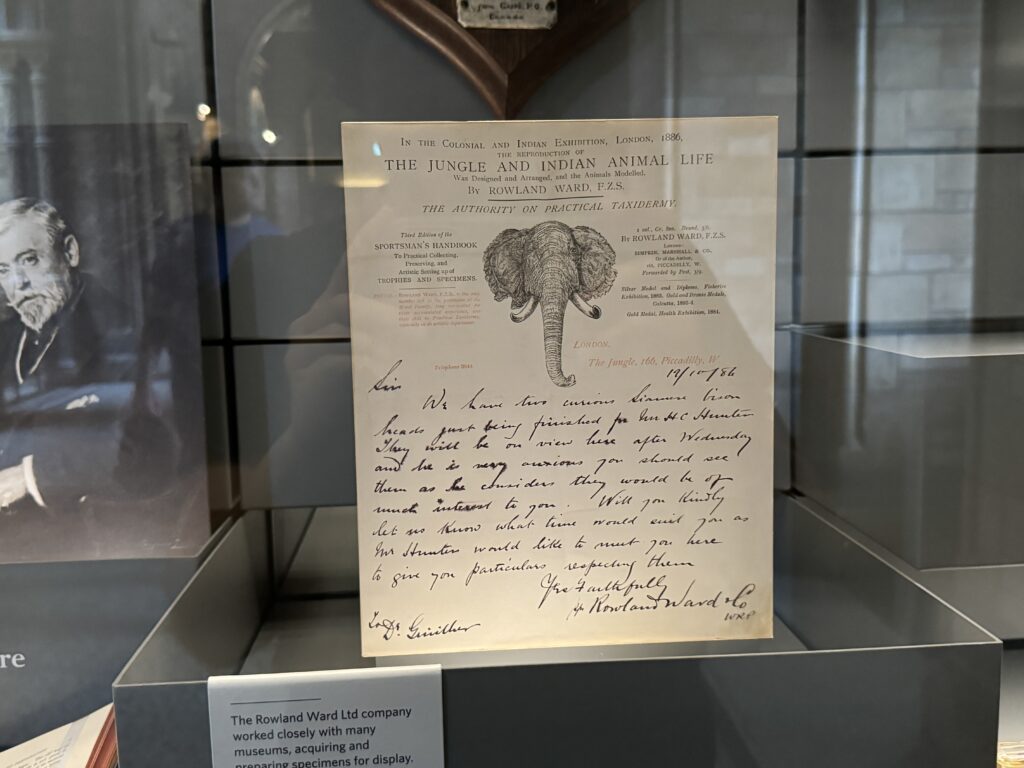 Canada
IN THE COLONIAL AND INDIAN EXHIBITION, LONDON, 1886,
THE REPRODUCTION OF
THE JUNGLE AND INDIAN ANIMAL LIFE
Was Designed and Arranged, and the Animals Modelled,
BY ROWLAND WARD, F.Z.S.
THE AUTHORITY ON PRACTICAL TAXIDERMY.
Third Edition of the
SPORTSMAN'S HANDBOOK
To Practical Collecting,
Preserving, and
Artistic Setting up of
TROPHIES AND SPECIMENS.
By ROWLAND WARD, F.Z.S.
London:
SIMPKIN, MARSHALL & CO.
Or of the Author,
166, PICCADILLY, W.
Forwarded by Post, 3/9.
Silver Medal and Diploma, Fisheries
Exhibition, 1883. Gold and Bronze Medals,
Calcutta, 1883-4.
Gold Medal, Health Exhibition, 1884.
LONDON,
The Jungle, 166, Piccadilly, W
Telephone
19/10/86
Sir
We have two curious Siamese bison
heads just being finished for Mr H C Hunter
They will be on view here after Wednesday
and he is very anxious you should see
them as he considers they would be of
much interest to you. Will you kindly
let us know what time would suit you as
Mr Hunter would like to meet you here
to give you particulars respecting them
Yrs Faithfully
Rowland Ward & Co
WRP
To Dr. Günther
re
The Rowland Ward Ltd company
worked closely with many
museums, acquiring and
preparing specimens for display.